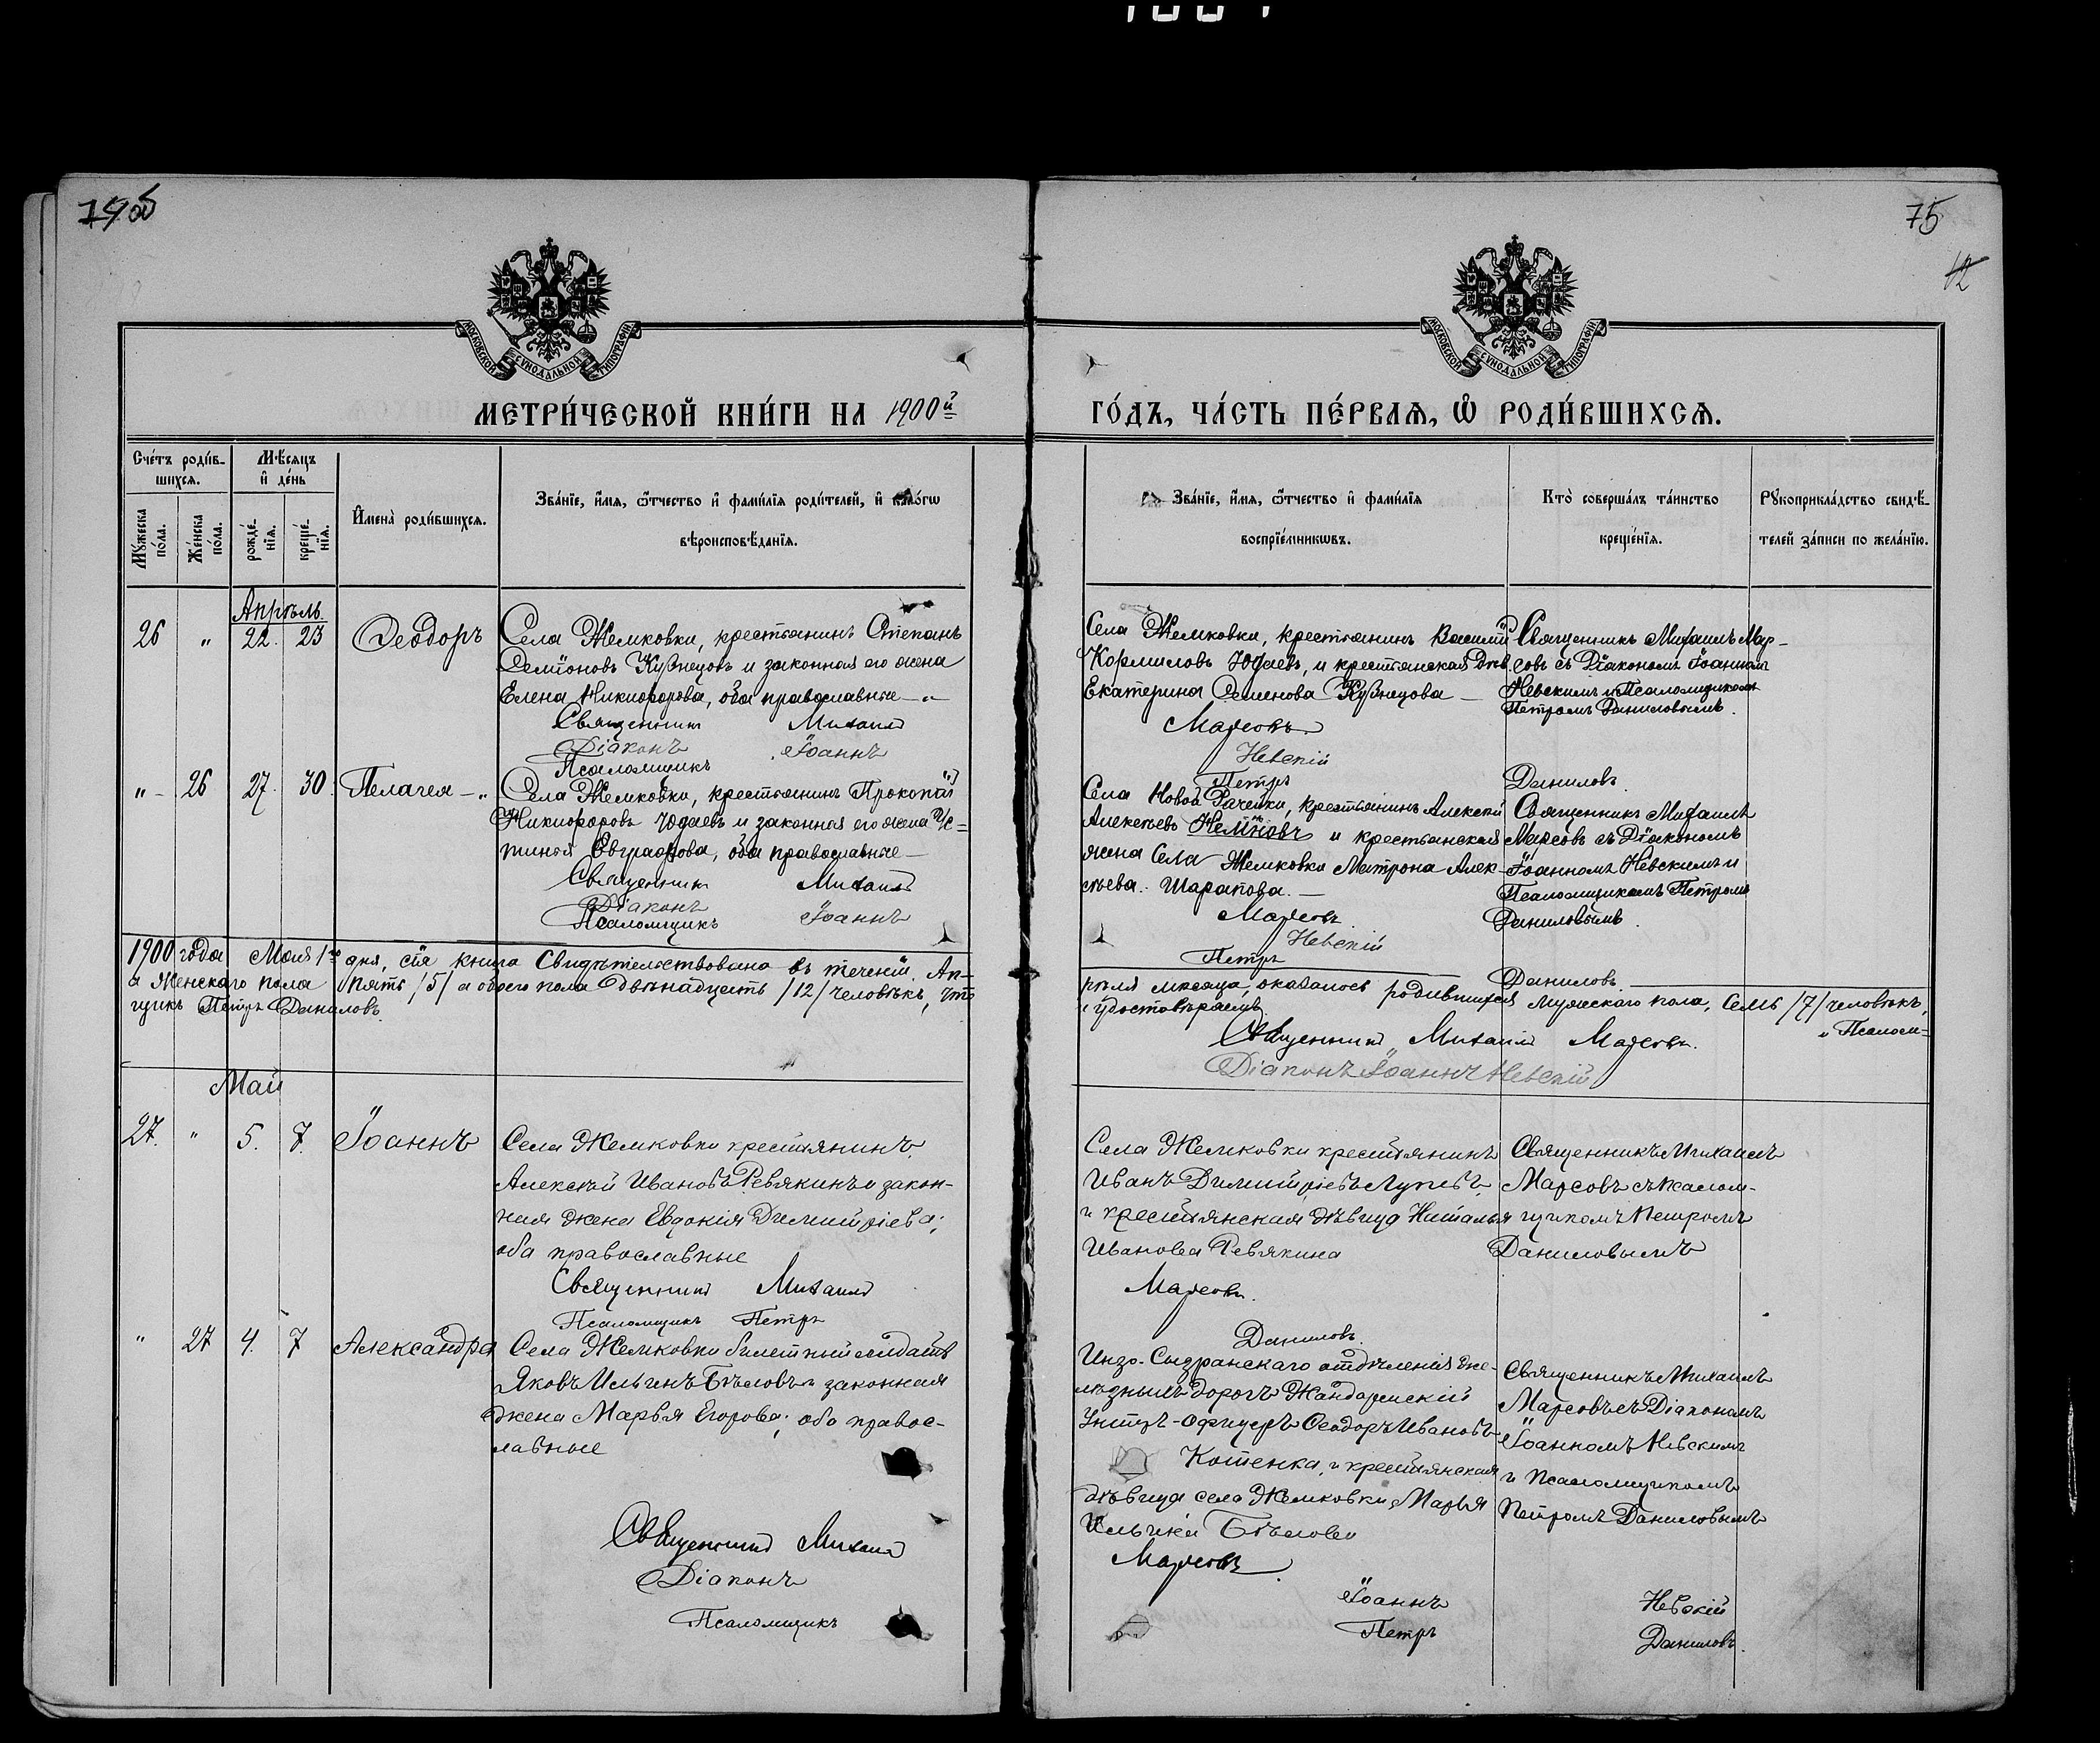 75
12
МОСКОВСКОЙ СѴНОДАЛЬНОЙ ТИПОГРАФІИ
МОСКОВСКОЙ СѴНОДАЛЬНОЙ ТИПОГРАФІИ
МЕТРИ́ЧЕСКОЙ КНИ́ГИ НА 1900й
ГО́ДЪ, ЧА́СТЬ ПЕ́РВАѦ, Ѡ РОДИ́ВШИХСѦ.
Сче́тъ роди́в-
шихся.
Мꙋжеска по́ла.
Же́нска по́ла.
Мѣ́сяцъ
и҆ де́нь
рожде́-
нїѧ.
креще́-
нїѧ.
И҆мена̀ роди́вшихсѧ.
Зва́нїе, и҆́мѧ, ѻ҆́тчество и҆ фами́лїѧ роди́телей, и҆ како́гѡ
вѣроисповѣ́данїѧ.
Зва́нїе, и҆́мѧ, ѻ҆́тчество и҆ фами́лїѧ
воспрїе́мникѡвъ.
Кто̀ соверша́лъ та́инство
креще́нїѧ.
Рꙋкоприкла́дство свидѣ́-
телей за́писи по жела́нїю.
Апрѣль
26 " 22. 23 Ѳеодоръ
Села Жемковки, крестьянинъ Степанъ
Семіоновъ Кузнецовъ и законная его жена
Елена Никифорова, оба православные
Священникъ Михаилъ
Діаконъ Іоаннъ
Псаломщикъ
Села Жемковки, крестьянинъ Василій
Кормиловъ Юдаевъ, и крестьянская дѣв.
Екатерина Семенова Кузнецова
Марсовъ
Невскій
Петръ
Священникъ Михаилъ Мар-
совъ съ Діакономъ Іоанномъ
Невскимъ и Псаломщикомъ
Петромъ Даниловымъ.
Даниловъ.
" 26 27. 30. Пелагея
Села Жемковки, крестьянинъ Прокопій
Никифоровъ Юдаевъ и законная его жена Ус=
тинья Евграфова, оба православные
Священникъ Михаилъ
Діаконъ Іоаннъ
Псаломщикъ
Села Новой Рачейки, крестьянинъ Алексѣй
Алексѣевъ и крестьянская
жена Села Жемковки Матрона Алек-
сѣева Шарапова.
Марсовъ
Невскій
Петръ
Священникъ Михаилъ
Марсовъ съ Діакономъ
Іоанномъ Невскимъ и
Псаломщикомъ Петромъ
Даниловымъ.
Даниловъ.
1900 года Мая 1го дня, сія книга Свидѣтельствована въ теченіи Ап-
рѣля мѣсяца, оказалось родившихся мужескаго пола, Семь /7/ человѣкъ,
а Женскаго пола пять /5/ а обоего пола двѣнадцать /12/ человѣкъ, что
и удостовѣряемъ
Священникъ Михаилъ Марсовъ.
Діаконъ Іоаннъ Невскій
и Псалом-
щикъ Петръ Даниловъ.
Май
27. " 5. 7. Іоаннъ
Села Жемковки крестьянинъ
Алексѣй Ивановъ Ревякинъ и закон-
ная жена Евдокія Димитріева;
оба православные
Священникъ Михаилъ
Псаломщикъ Петръ
Села Жемковки крестьянинъ
Иванъ Димитріевъ Лупевъ,
и крестьянская дѣвица Наталья
Иванова Ревякина
Марсовъ.
Даниловъ.
Священникъ Михаилъ
Марсовъ съ псалом-
щикомъ Петромъ
Даниловымъ
" 27 4. 7 Александра
Села Жемковки билетный солдатъ
Яковъ Ильинъ Бѣловъ и законная
жена Марья Егорова; оба правос-
лавные
Священникъ Михаилъ
Діаконъ
Псаломщикъ
Инзо-Сызранскаго отдѣленія же-
лѣзныхъ дорогъ Жандармскій
Унтеръ-офицеръ Ѳеодоръ Ивановъ
Котенка, и крестьянская
дѣвица села Жемковки Марья
Ильина Бѣлова
Марсовъ
Іоаннъ Невскій
Петръ Даниловъ.
Священникъ Михаилъ
Марсовъ съ Діакономъ
Іоанномъ Невскимъ
и псаломщикомъ
Петромъ Даниловымъ